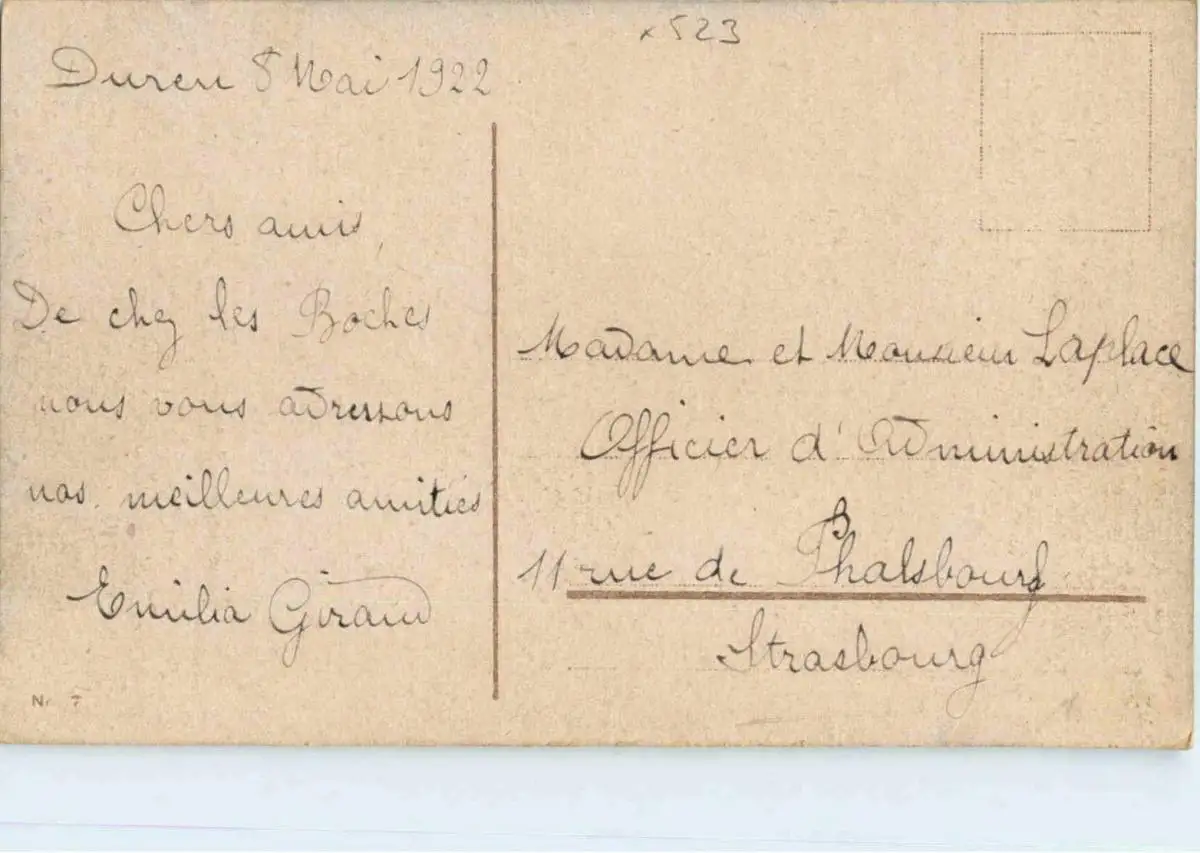 x 523
Duren 8 Mai 1922
Chers amis,
De chez les Boches
nous vous adressons
nos meilleures amitiés
Emilia Giraud
Madame et Monsieur Laplace
Officier d'Administration
11 rue de Phalsbourg
Strasbourg
Nr. 7